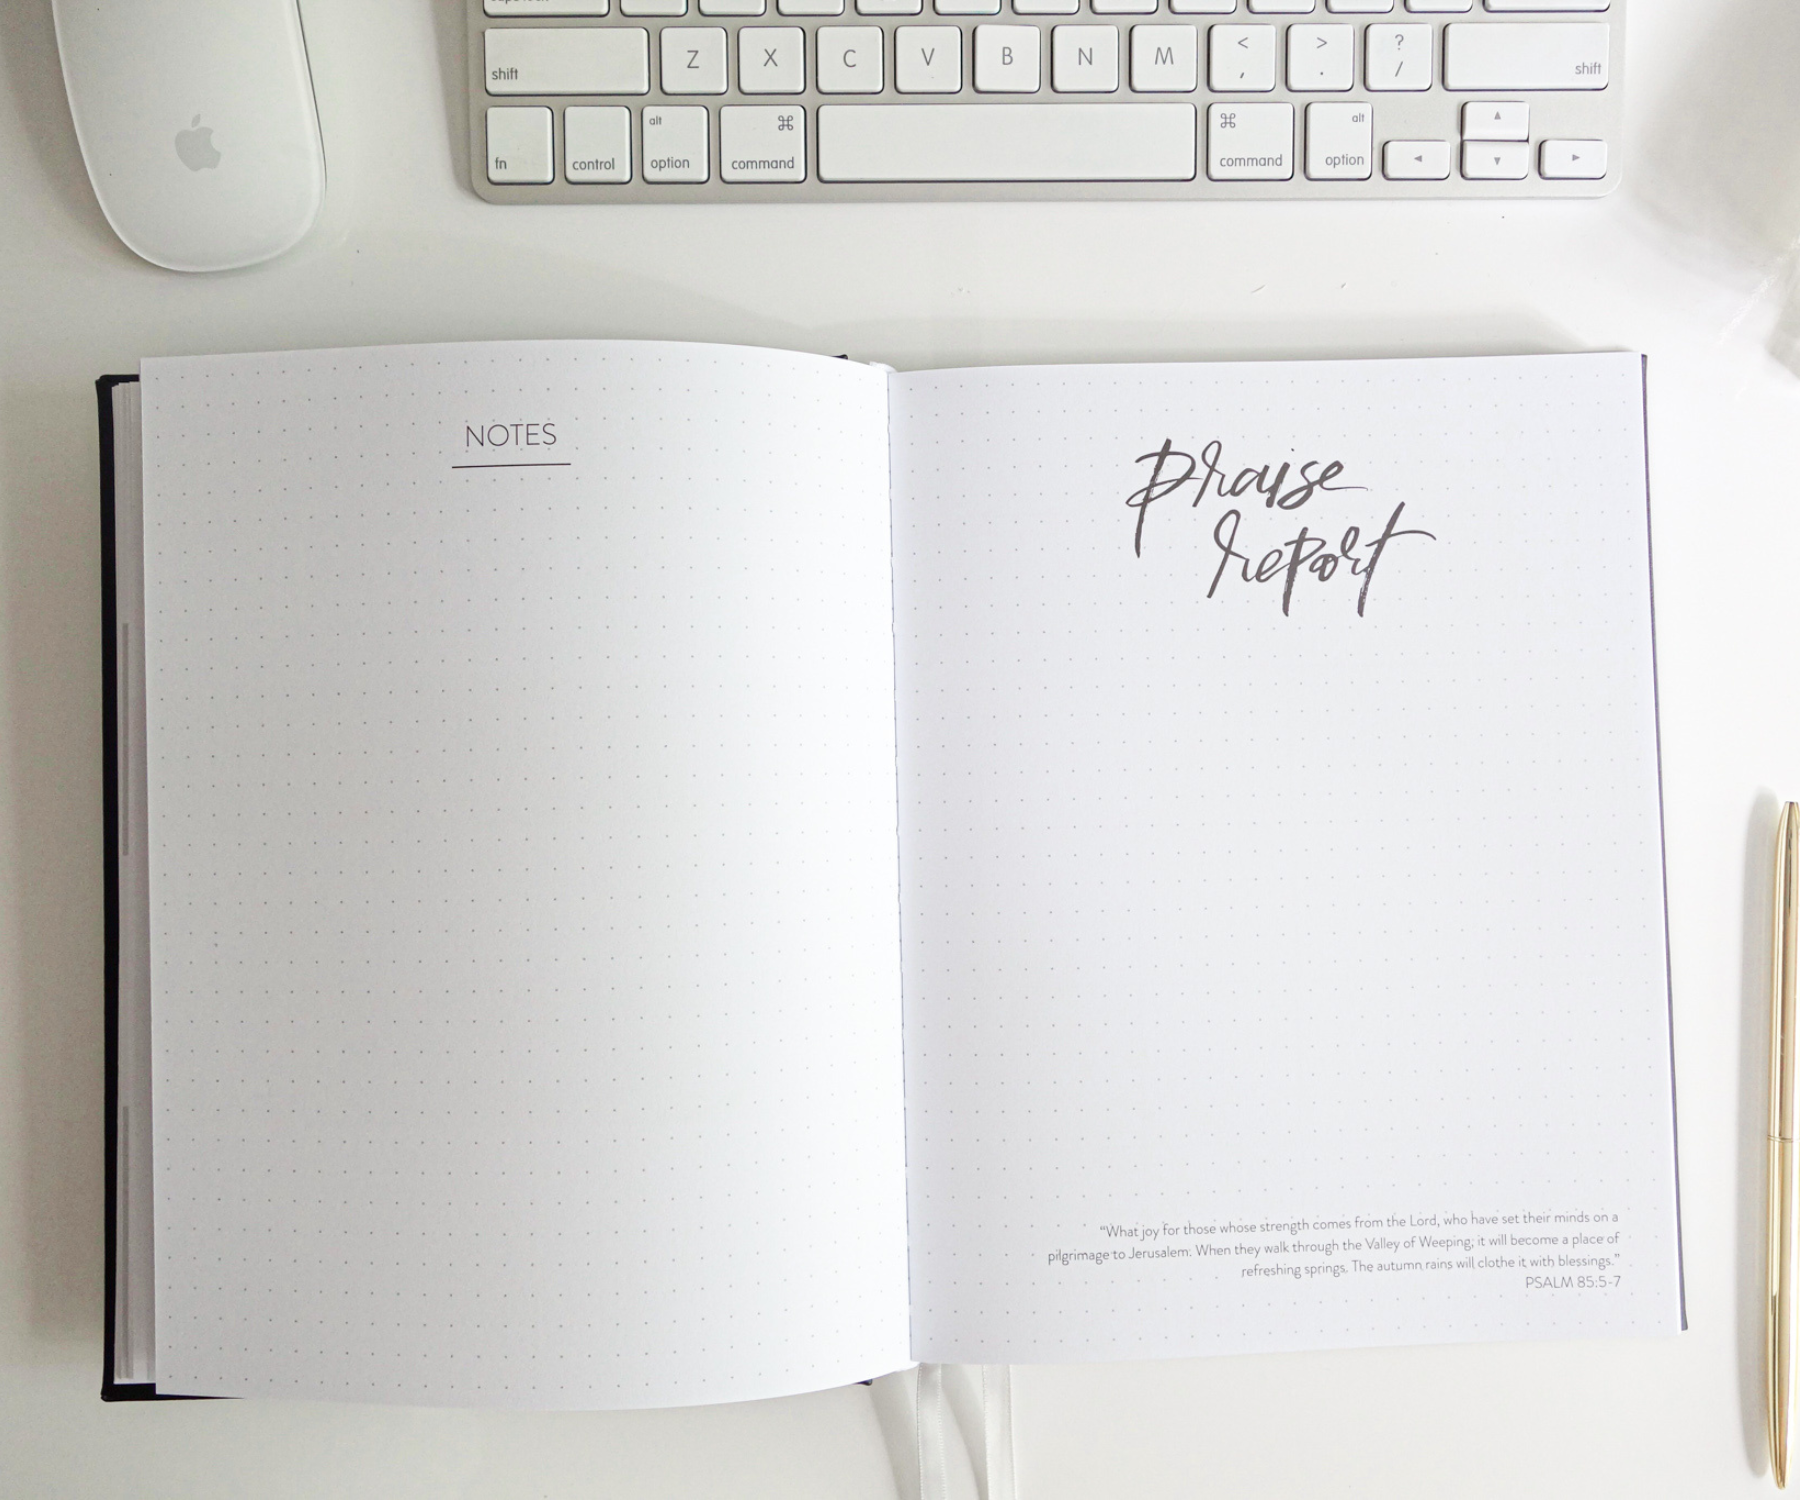 caps lock
shift Z X C V B N M < , > . ? / shift
fn control alt option ⌘ command ⌘ command alt option ◄ ▲ ▼ ►
NOTES
praise
report
“What joy for those whose strength comes from the Lord, who have set their minds on a
pilgrimage to Jerusalem. When they walk through the Valley of Weeping; it will become a place of
refreshing springs. The autumn rains will clothe it with blessings.”
PSALM 85:5-7